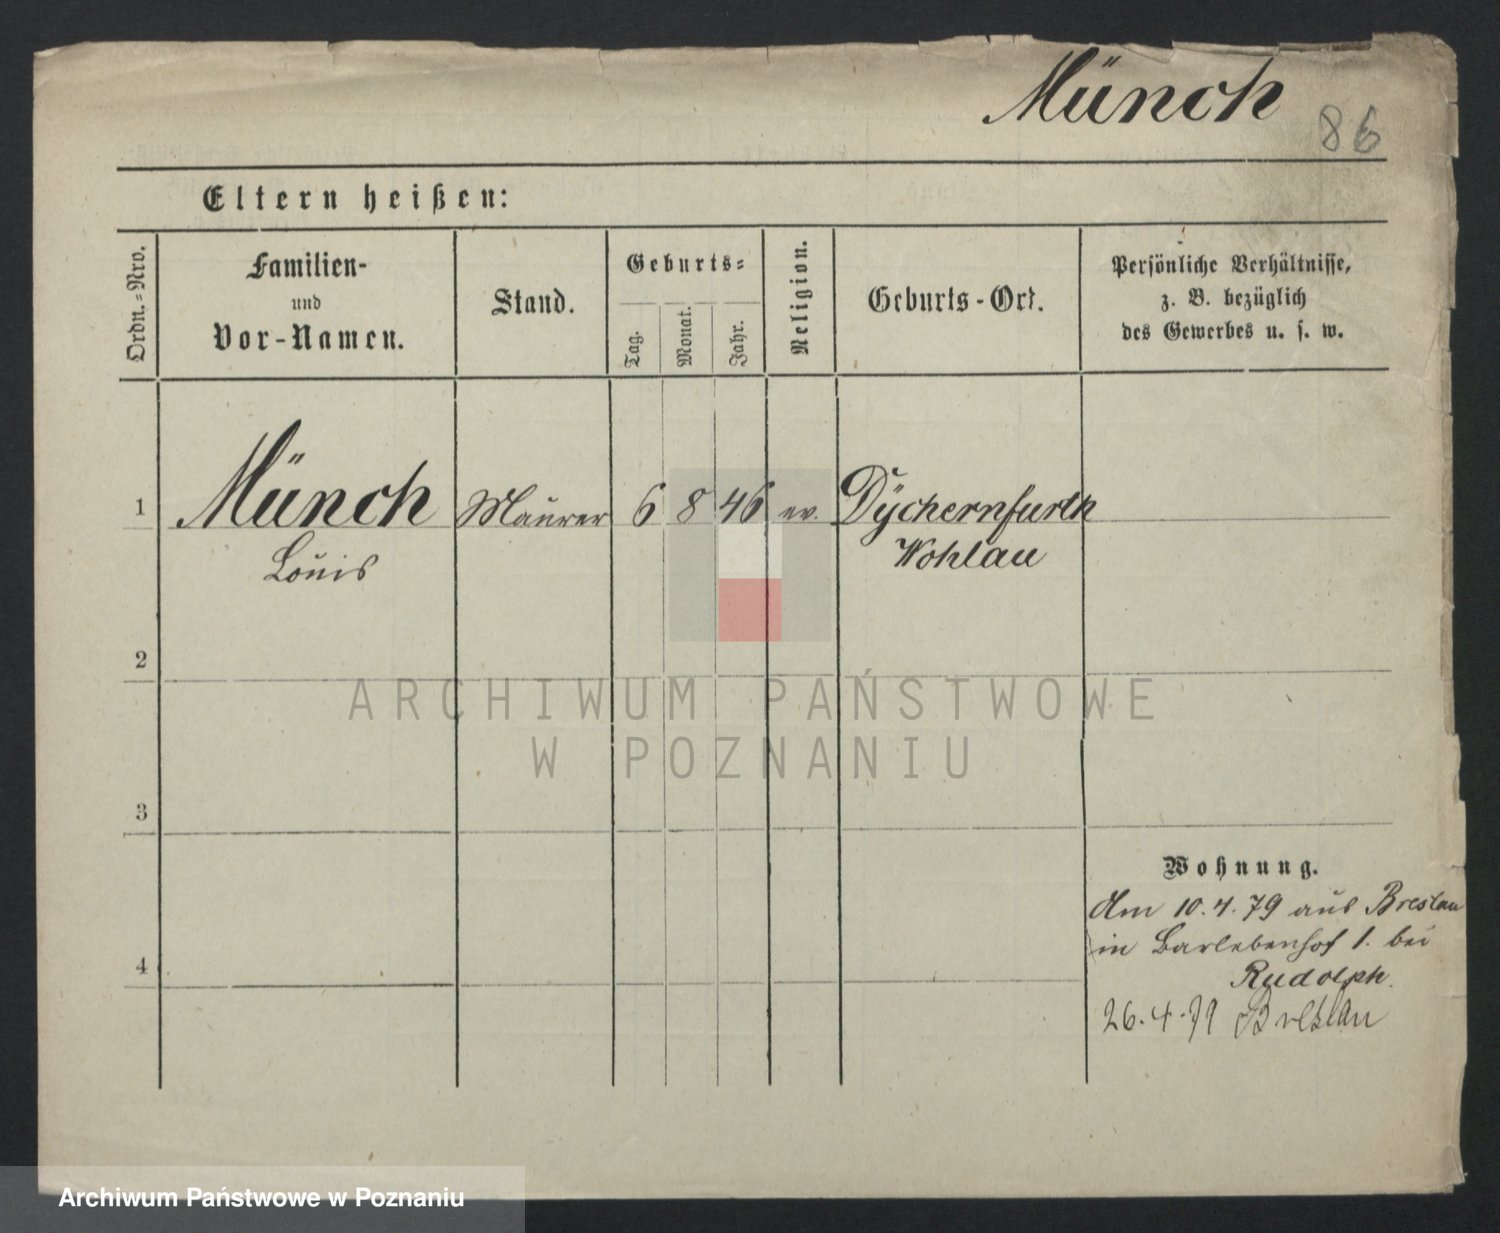 Münch
86
Eltern heißen:
Ordn.-Nro.
Familien-
und
Vor-Namen.
Stand.
Geburts-
Tag.
Monat.
Jahr.
Religion.
Geburts-Ort.
Persönliche Verhältnisse,
z. B. bezüglich
des Gewerbes u. s. w.
1 Münch Maurer 6 8 46 ev. Dÿchernfurth
Louis Wohlau
2
ARCHIWUM PAŃSTWOWE
W POZNANIU
3
Wohnung.
Am 10.4.79 aus Breslau
in Barlebenhof 1. bei
4
Rudolph.
26.4.79 Breslau
Archiwum Państwowe w Poznaniu